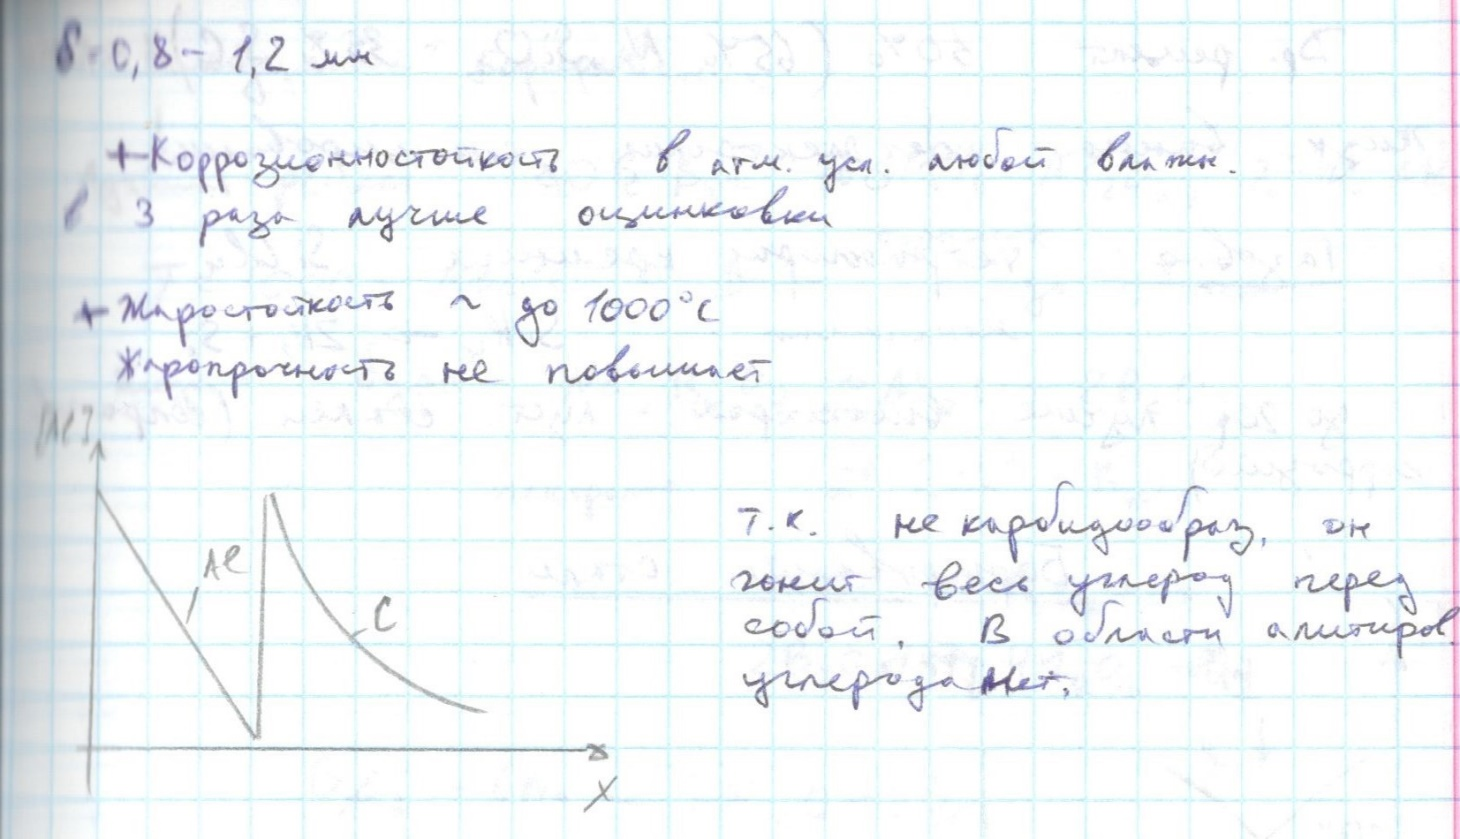 δ = 0,8 - 1,2 мм
+ Коррозионностойкость в атм. усл. любой влажн.
в 3 раза лучше оцинковки
+ Жаростойкость ~ до 1000°C
Жаропрочность не повышает
[Al]
Al
C
X
т.к. не карбидообраз, он
гонит весь углерод перед
собой. В области алитиров.
углерода нет.